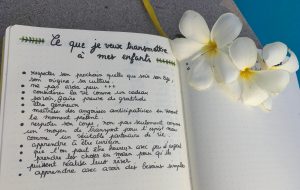 Ce que je veux transmettre
à mes enfants
• respecter son prochain quelle que soit son âge,
son origine, sa culture
• ne pas avoir peur
• considérer la vie comme un cadeau
• savoir faire preuve de gratitude
• être généreux
• maîtriser ses angoisses anticipatoires en vivant
le moment présent
• respecter son corps, non pas seulement comme
un moyen de transport pour l'esprit mais
comme un véritable partenaire de vie
• apprendre à être curieux
• que l'on peut être heureux avec peu d'objets
• prendre les choses en main pour qu'ils
puissent réaliser leurs rêves
• apprendre avec avoir des besoins simples